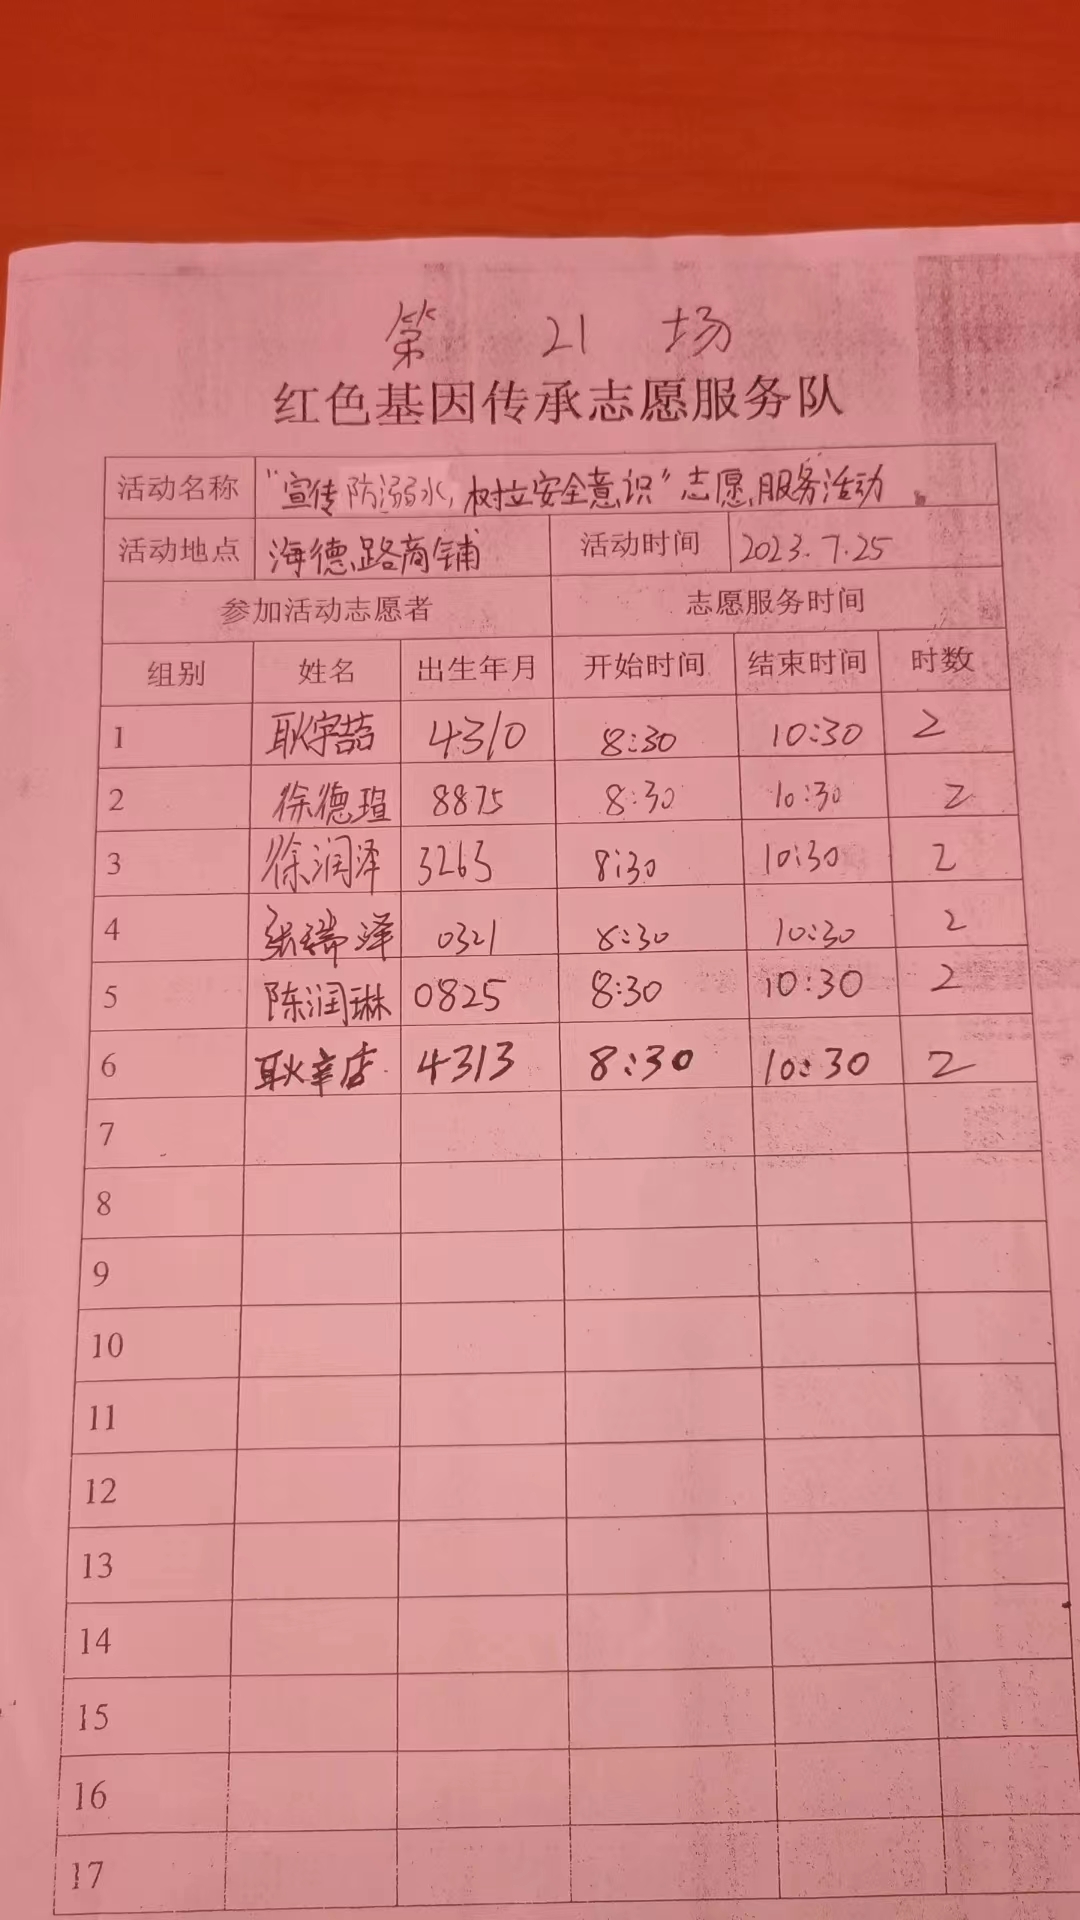 第 21 场
红色基因传承志愿服务队
活动名称 "宣传防溺水,树立安全意识"志愿服务活动
活动地点 海德路商铺 活动时间 2023.7.25
参加活动志愿者 志愿服务时间
组别 姓名 出生年月 开始时间 结束时间 时数
1 耿宇喆 4310 8:30 10:30 2
2 徐德瑄 8875 8:30 10:30 2
3 徐润泽 3263 8:30 10:30 2
4 张瑞泽 0321 8:30 10:30 2
5 陈润琳 0825 8:30 10:30 2
6 耿辛店 4313 8:30 10:30 2
7
8
9
10
11
12
13
14
15
16
17